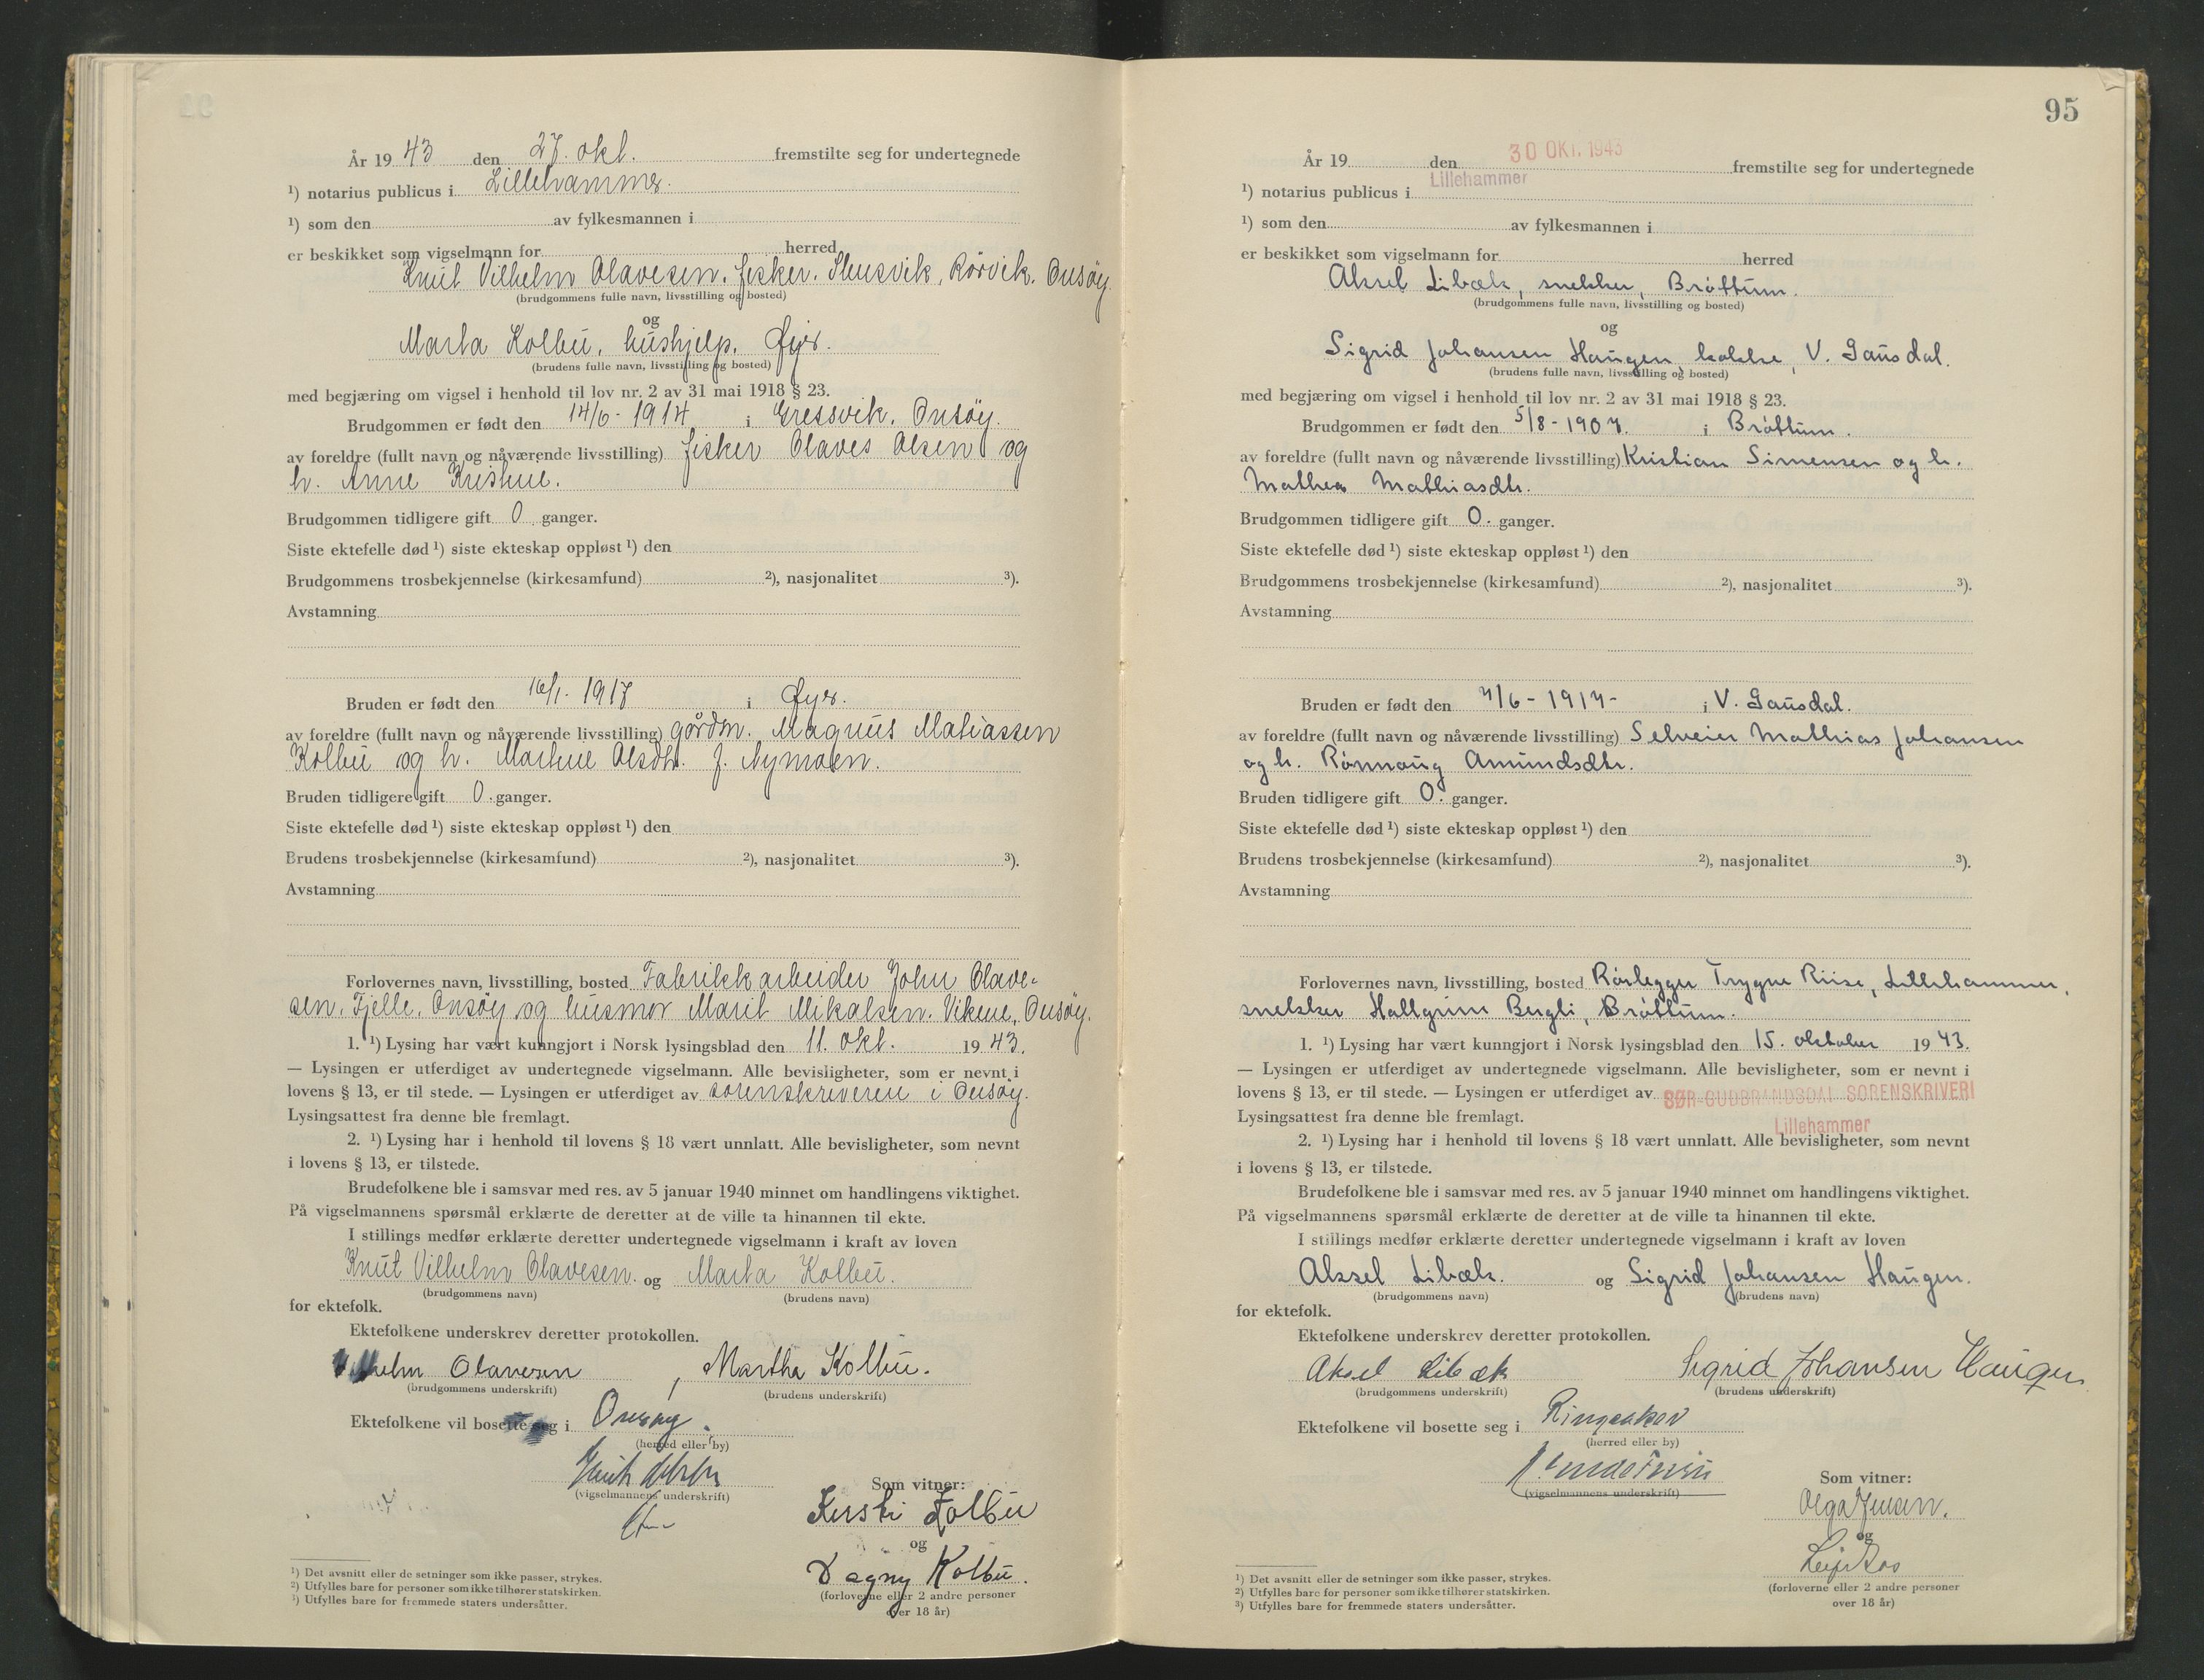 År 19 43 den 27. okt. fremstilte seg for undertegnede
¹) notarius publicus i Lillehammer.
¹) som den av fylkesmannen i
er beskikket som vigselmann for herred
Knut Vilhelm Olavesen, fisker, Slusvik, Rörvik, Onsöy
(brudgommens fulle navn, livsstilling og bosted)
og
Marta Kolbu, hushjelp, Øyer.
(brudens fulle navn, livsstilling og bosted)
med begjæring om vigsel i henhold til lov nr. 2 av 31 mai 1918 § 23.
Brudgommen er født den 14/6 - 1914 i Gressvik, Onsöy.
av foreldre (fullt navn og nåværende livsstilling) fisker Olaves Olsen og
h. Anne Kristine.
Brudgommen tidligere gift 0 ganger.
Siste ektefelle død ¹) siste ekteskap oppløst ¹) den
Brudgommens trosbekjennelse (kirkesamfund) ²), nasjonalitet ³).
Avstamning
Bruden er født den 16/1. 1917 i Øyer.
av foreldre (fullt navn og nåværende livsstilling) gårdm. Magnus Matiassen
Kolbu og h. Martine Olsdtr. f. Nymoen.
Bruden tidligere gift 0. ganger.
Siste ektefelle død ¹) siste ekteskap oppløst ¹) den
Brudens trosbekjennelse (kirkesamfund) ²), nasjonalitet ³).
Avstamning
Forlovernes navn, livsstilling, bosted Fabrikkarbeider John Olave-
sen, Fjelle, Onsöy og husmor Marit Mikalsen, Vikene, Onsöy.
1. ¹) Lysing har vært kunngjort i Norsk lysingsblad den 11. okt. 19 43.
— Lysingen er utferdiget av undertegnede vigselmann. Alle bevisligheter, som er nevnt i
lovens § 13, er til stede. — Lysingen er utferdiget av sorenskriveren i Onsöy.
Lysingsattest fra denne ble fremlagt.
2. ¹) Lysing har i henhold til lovens § 18 vært unnlatt. Alle bevisligheter, som nevnt
i lovens § 13, er tilstede.
Brudefolkene ble i samsvar med res. av 5 januar 1940 minnet om handlingens viktighet.
På vigselmannens spørsmål erklærte de deretter at de ville ta hinannen til ekte.
I stillings medfør erklærte deretter undertegnede vigselmann i kraft av loven
Knut Vilhelm Olavesen. og Marta Kolbu.
(brudgommens navn) (brudens navn)
for ektefolk.
Ektefolkene underskrev deretter protokollen.
Vilhelm Olavesen Martha Kolbu.
(brudgommens underskrift) (brudens underskrift)
Ektefolkene vil bosette seg i Onsøy.
(herred eller by)
(vigselmannens underskrift)
Som vitner:
Kersti Kolbu
og
Dagny Kolbu.
(forloverne eller 2 andre personer
over 18 år)
¹) Det avsnitt eller de setninger som ikke passer, strykes.
²) Utfylles bare for personer som ikke tilhører statskirken.
³) Utfylles bare for fremmede staters undersåtter.
95
År 19 den 30 OKT. 1943 fremstilte seg for undertegnede
¹) notarius publicus i Lillehammer
¹) som den av fylkesmannen i
er beskikket som vigselmann for herred
Aksel Libæk, snekker, Bröttum.
(brudgommens fulle navn, livsstilling og bosted)
og
Sigrid Johansen Haugen, kokke, V. Gausdal.
(brudens fulle navn, livsstilling og bosted)
med begjæring om vigsel i henhold til lov nr. 2 av 31 mai 1918 § 23.
Brudgommen er født den 5/8 - 1907. i Bröttum.
av foreldre (fullt navn og nåværende livsstilling) Kristian Simensen og h.
Mathea Mathiasdtr.
Brudgommen tidligere gift 0. ganger.
Siste ektefelle død ¹) siste ekteskap oppløst ¹) den
Brudgommens trosbekjennelse (kirkesamfund) ²), nasjonalitet ³).
Avstamning
Bruden er født den 7/6 - 1917 - i V. Gausdal.
av foreldre (fullt navn og nåværende livsstilling) Selveier Mathias Johansen
og h. Rönnaug Amundsdtr.
Bruden tidligere gift 0. ganger.
Siste ektefelle død ¹) siste ekteskap oppløst ¹) den
Brudens trosbekjennelse (kirkesamfund) ²), nasjonalitet ³).
Avstamning
Forlovernes navn, livsstilling, bosted Rörlegger Trygve Riise, Lillehammer,
snekker Hallgrim Bergli, Bröttum.
1. ¹) Lysing har vært kunngjort i Norsk lysingsblad den 15. oktober 19 43.
— Lysingen er utferdiget av undertegnede vigselmann. Alle bevisligheter, som er nevnt i
lovens § 13, er til stede. — Lysingen er utferdiget av SØR-GUDBRANDSDAL SORENSKRIVERI
Lysingsattest fra denne ble fremlagt. Lillehammer
2. ¹) Lysing har i henhold til lovens § 18 vært unnlatt. Alle bevisligheter, som nevnt
i lovens § 13, er tilstede.
Brudefolkene ble i samsvar med res. av 5 januar 1940 minnet om handlingens viktighet.
På vigselmannens spørsmål erklærte de deretter at de ville ta hinannen til ekte.
I stillings medfør erklærte deretter undertegnede vigselmann i kraft av loven
Aksel Libæk. og Sigrid Johansen Haugen.
(brudgommens navn) (brudens navn)
for ektefolk.
Ektefolkene underskrev deretter protokollen.
Aksel Libæk Sigrid Johansen Haugen
(brudgommens underskrift) (brudens underskrift)
Ektefolkene vil bosette seg i Ringsaker
(herred eller by)
(vigselmannens underskrift)
Som vitner:
Olga Jensen.
og
Leif
(forloverne eller 2 andre personer
over 18 år)
¹) Det avsnitt eller de setninger som ikke passer, strykes.
²) Utfylles bare for personer som ikke tilhører statskirken.
³) Utfylles bare for fremmede staters undersåtter.